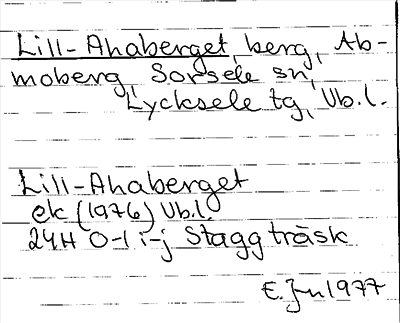 Lill-Ahaberget, berg, Ab-
moberg, Sorsele sn,
Lycksele tg, Vb.l.
Lill-Ahaberget
ek (1976) Vb.l.
24H 0-1 i-j Staggträsk
1977